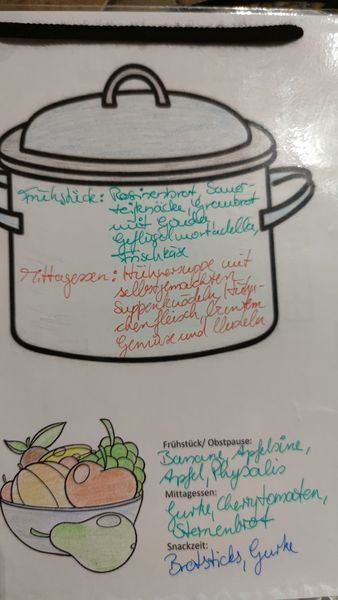 Frühstück: Rosinenbrot, Sauer-
teigknäcke, Graubrot
mit Gouda,
Geflügelmortadella,
Frischkäse
Mittagessen: Hühnersuppe mit
selbstgemachten
Suppenknödeln, Hühn-
chenfleisch, buntem
Gemüse und Nudeln
Frühstück/ Obstpause:
Banane, Apfelsine,
Apfel, Physalis
Mittagessen:
Gurke, Cherrytomaten,
Sternenbrot
Snackzeit:
Brotsticks, Gurke